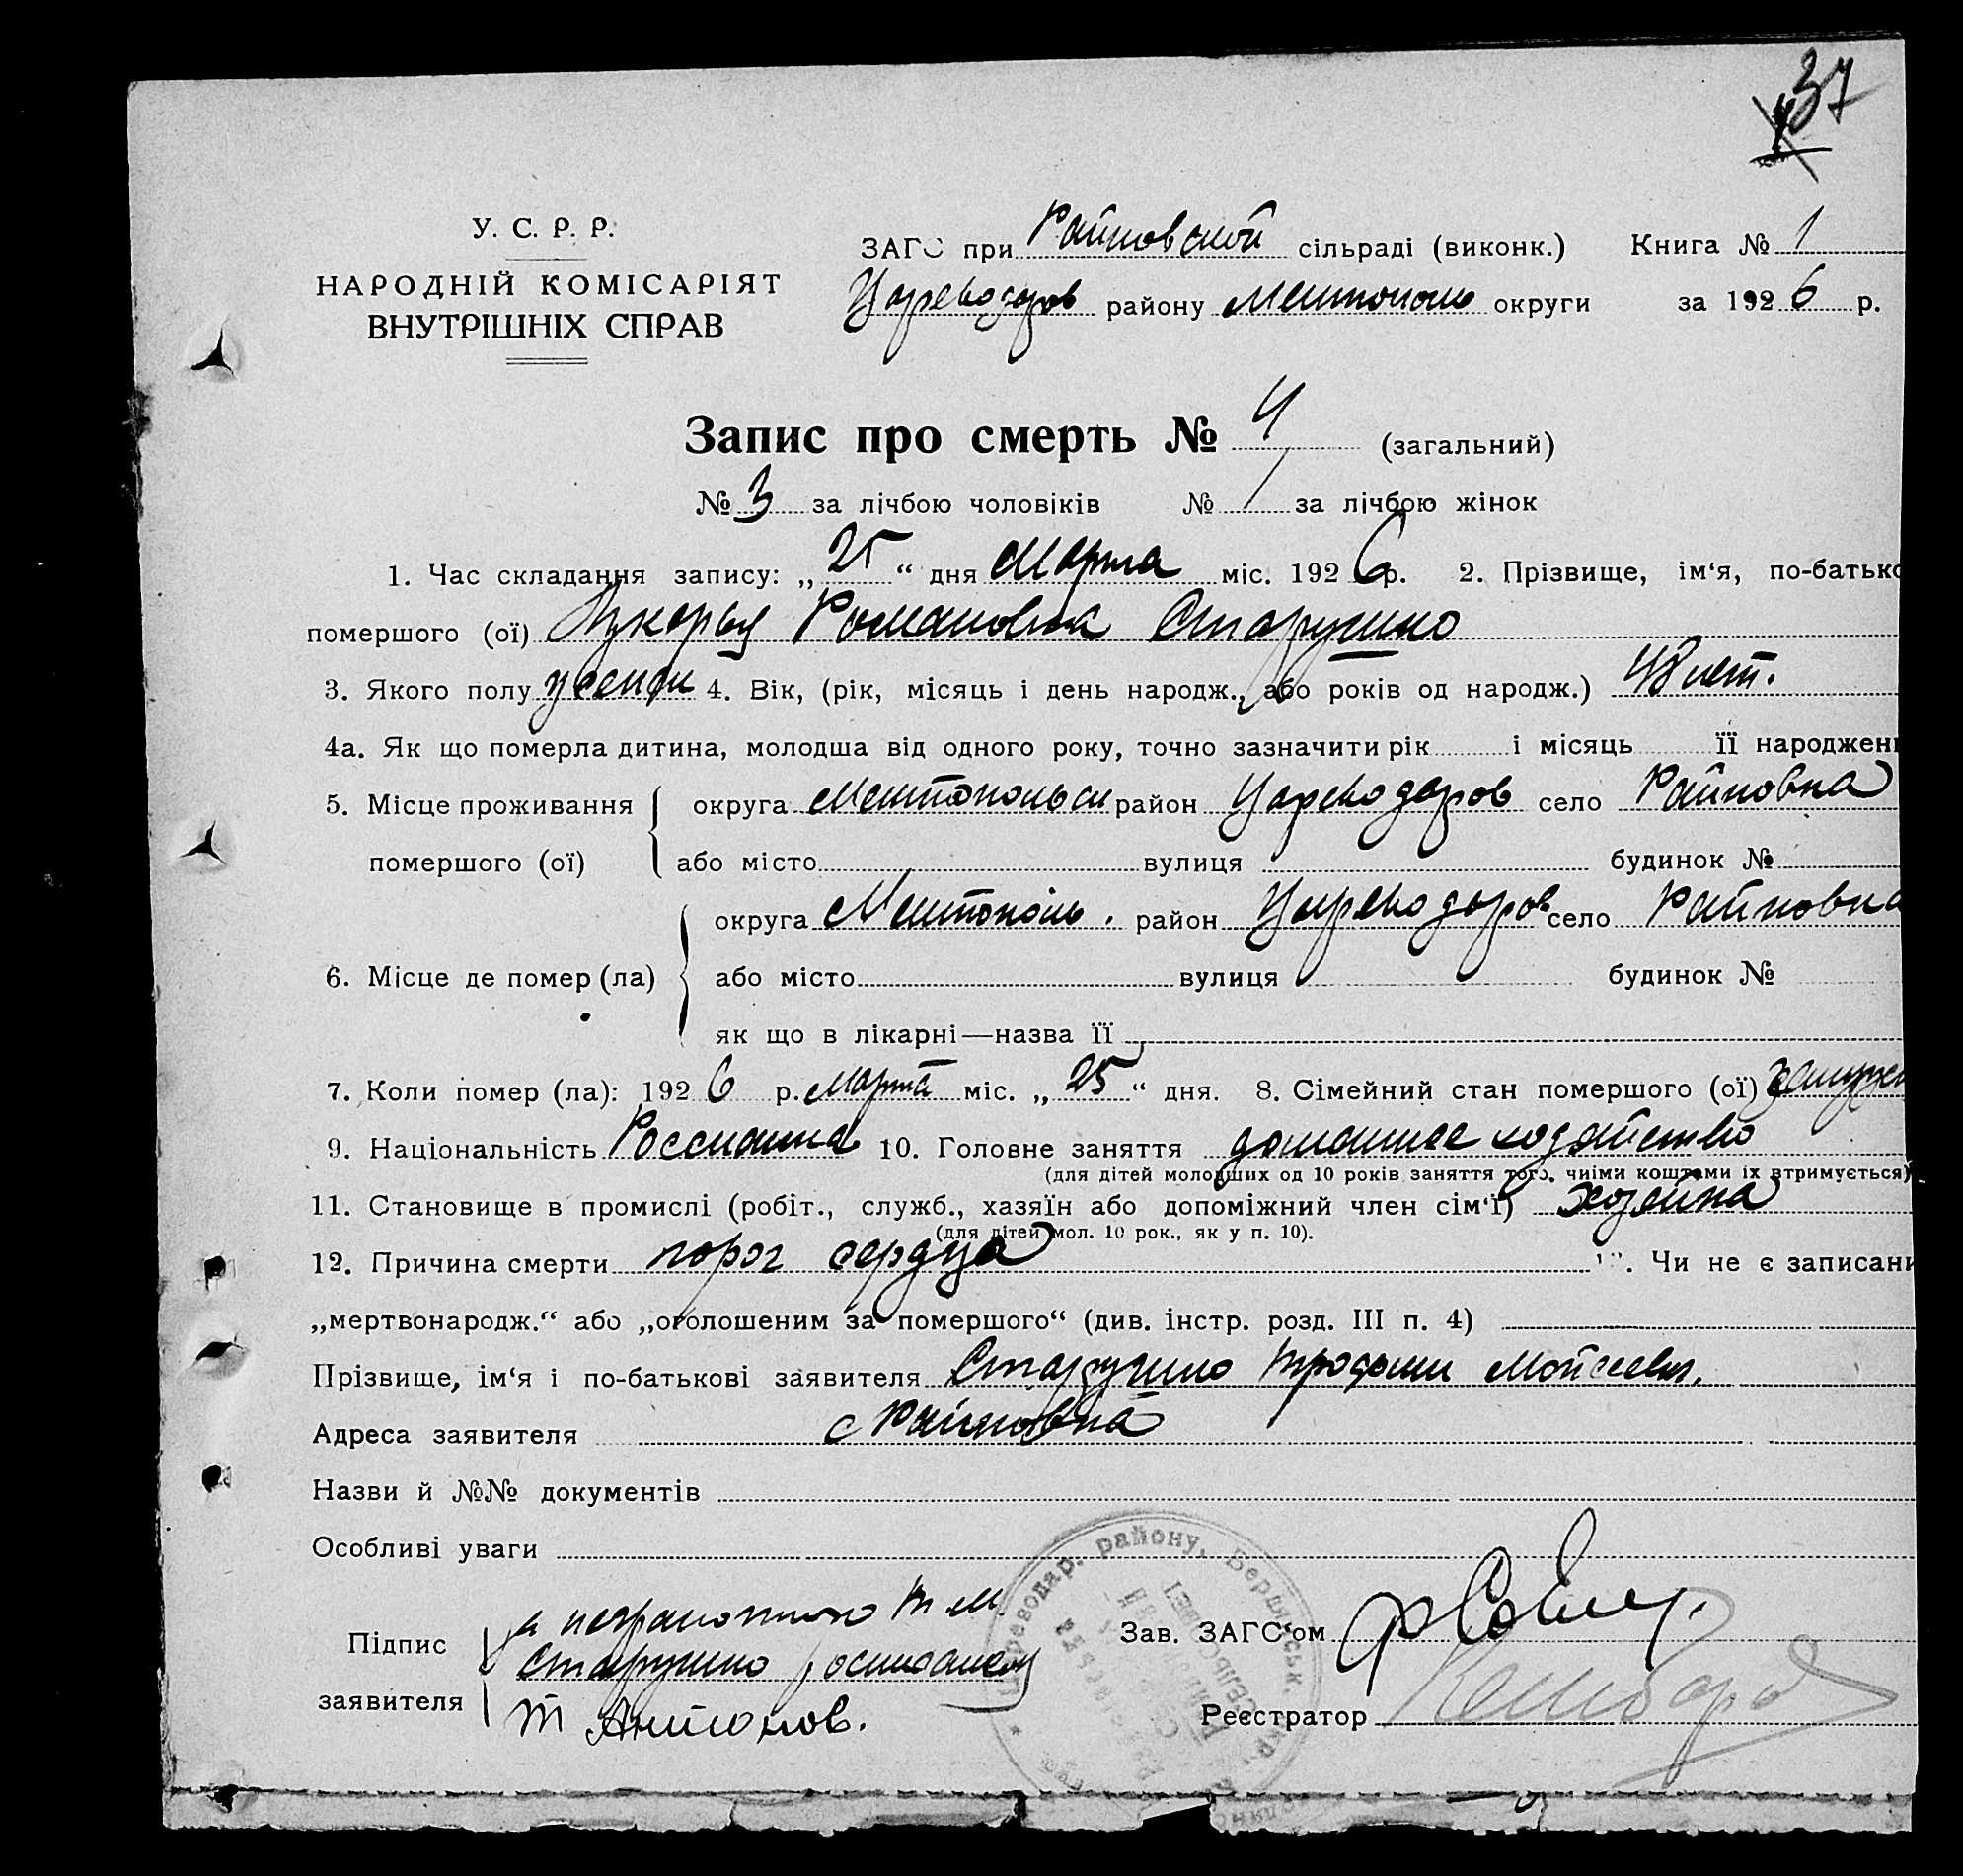 37
У. С. Р. Р.
НАРОДНІЙ КОМІСАРІЯТ
ВНУТРІШНІХ СПРАВ
ЗАГС при Райновской сільраді (виконк.) Книга № 1
Цареводаров району Мелитополь округи за 1926 р.
Запис про смерть № 4 (загальний)
№ 3 за лічбою чоловіків № 1 за лічбою жінок
1. Час складання запису: „25“ дня Марта міс. 1926 р. 2. Прізвище, ім‘я, по-батько
помершого (ої) Лукерья Романовна Старушко
3. Якого полу женск 4. Вік, (рік, місяць і день народж., або років од народж.) 48 лет.
4а. Як що померла дитина, молодша від одного року, точно зазначити рік і місяць її народжен
5. Місце проживання округа Мелитопольск район Цареводаров село Райновка
помершого (ої) або місто вулиця будинок №
округа Мелитополь. район Цареводаров село Райновка
6. Місце де помер (ла) або місто вулиця будинок №
як що в лікарні—назва її
7. Коли помер (ла): 1926 р. Марта міс. „25“ дня. 8. Сімейний стан помершого (ої) замужн
9. Національність 10. Головне заняття домашнее хозяйство
(для дітей молодших од 10 років заняття того, чиїми коштами їх втримується)
11. Становище в промислі (робіт., служб., хазяїн або допоміжний член сім‘ї) хозяйка
(для дітей мол. 10 рок., як у п. 10).
12. Причина смерти порог сердца . Чи не є записани
„мертвонародж.“ або „оголошеним за помершого“ (див. інстр. розд. III п. 4)
Прізвище, ім‘я і по-батькові заявителя Старушко Трофим Мойсеев.
Адреса заявителя с Райновка
Назви й №№ документів
Особливі уваги
Цареводар. району, Бердянськ.
Підпис за неграмотного Т М.
заявителя Старушко росписался
Т Антонов.
Зав. ЗАГС‘ом
Реєстратор